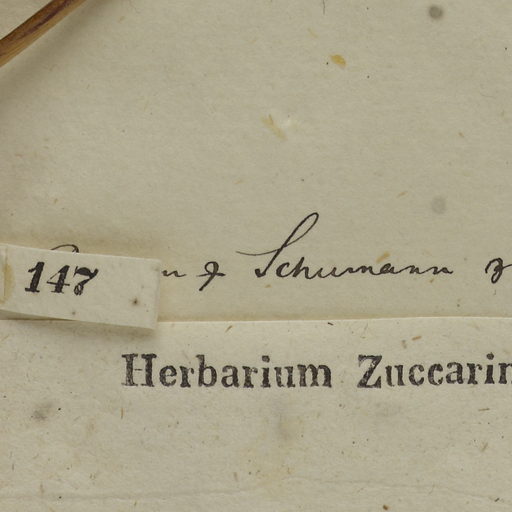 147
& Schumann
Herbarium Zuccarin